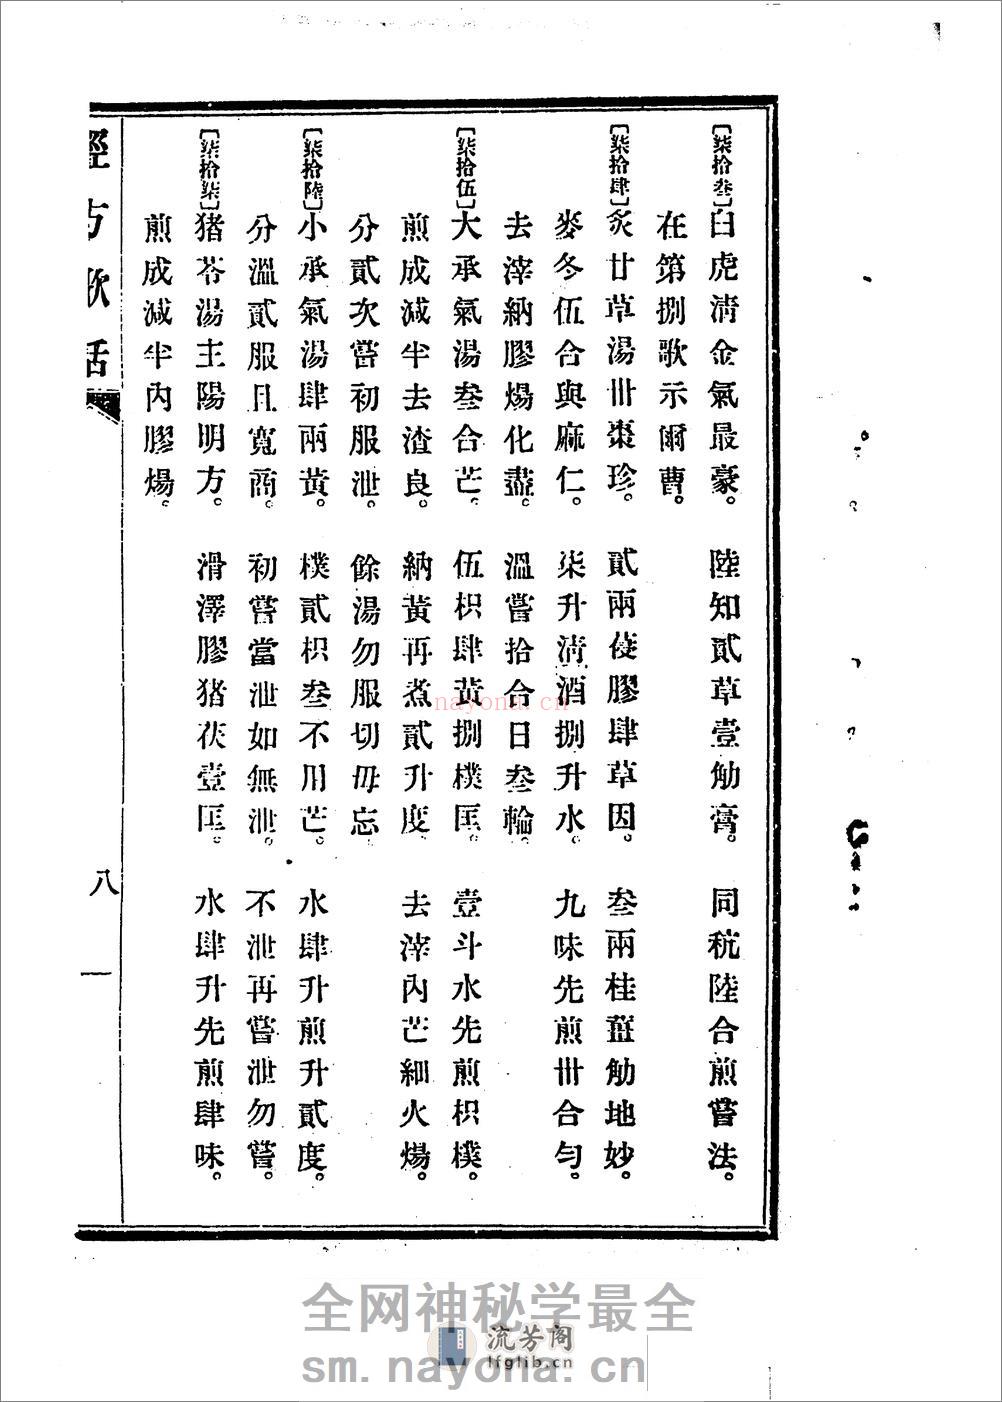 [柒拾叁]白虎淸金氣最豪。 陸知貳草壹觔膏。 同秔陸合煎嘗法。
在第捌歌示爾曹。
[柒拾肆]炙甘草湯卅棗珍。 貳兩葠膠肆草因。 叁兩桂薑觔地妙。
麥冬伍合與麻仁。 柒升淸酒捌升水。 九味先煎卅合勻。
去滓納膠煬化盡。 溫嘗拾合日叁輪。
[柒拾伍]大承氣湯叁合芒。 伍枳肆黃捌樸匡。 壹斗水先煎枳樸。
煎成減半去渣良。 納黃再煮貳升度。 去滓內芒細火煬。
分貳次嘗初服泄。 餘湯勿服切毋忘
[柒拾陸]小承氣湯肆兩黃。 樸貳枳叁不用芒。 水肆升煎升貳度。
分溫貳服且寬商。 初嘗當泄如無泄。 不泄再嘗泄勿嘗。
[柒拾柒]猪苓湯主陽明方。 滑澤膠猪茯壹匡。 水肆升先煎肆味。
煎成減半內膠煬。
經方歌括
八
一
nayona.cn
全网神秘学最全
流芳阁
lfglib.cn
sm.nayona.cn